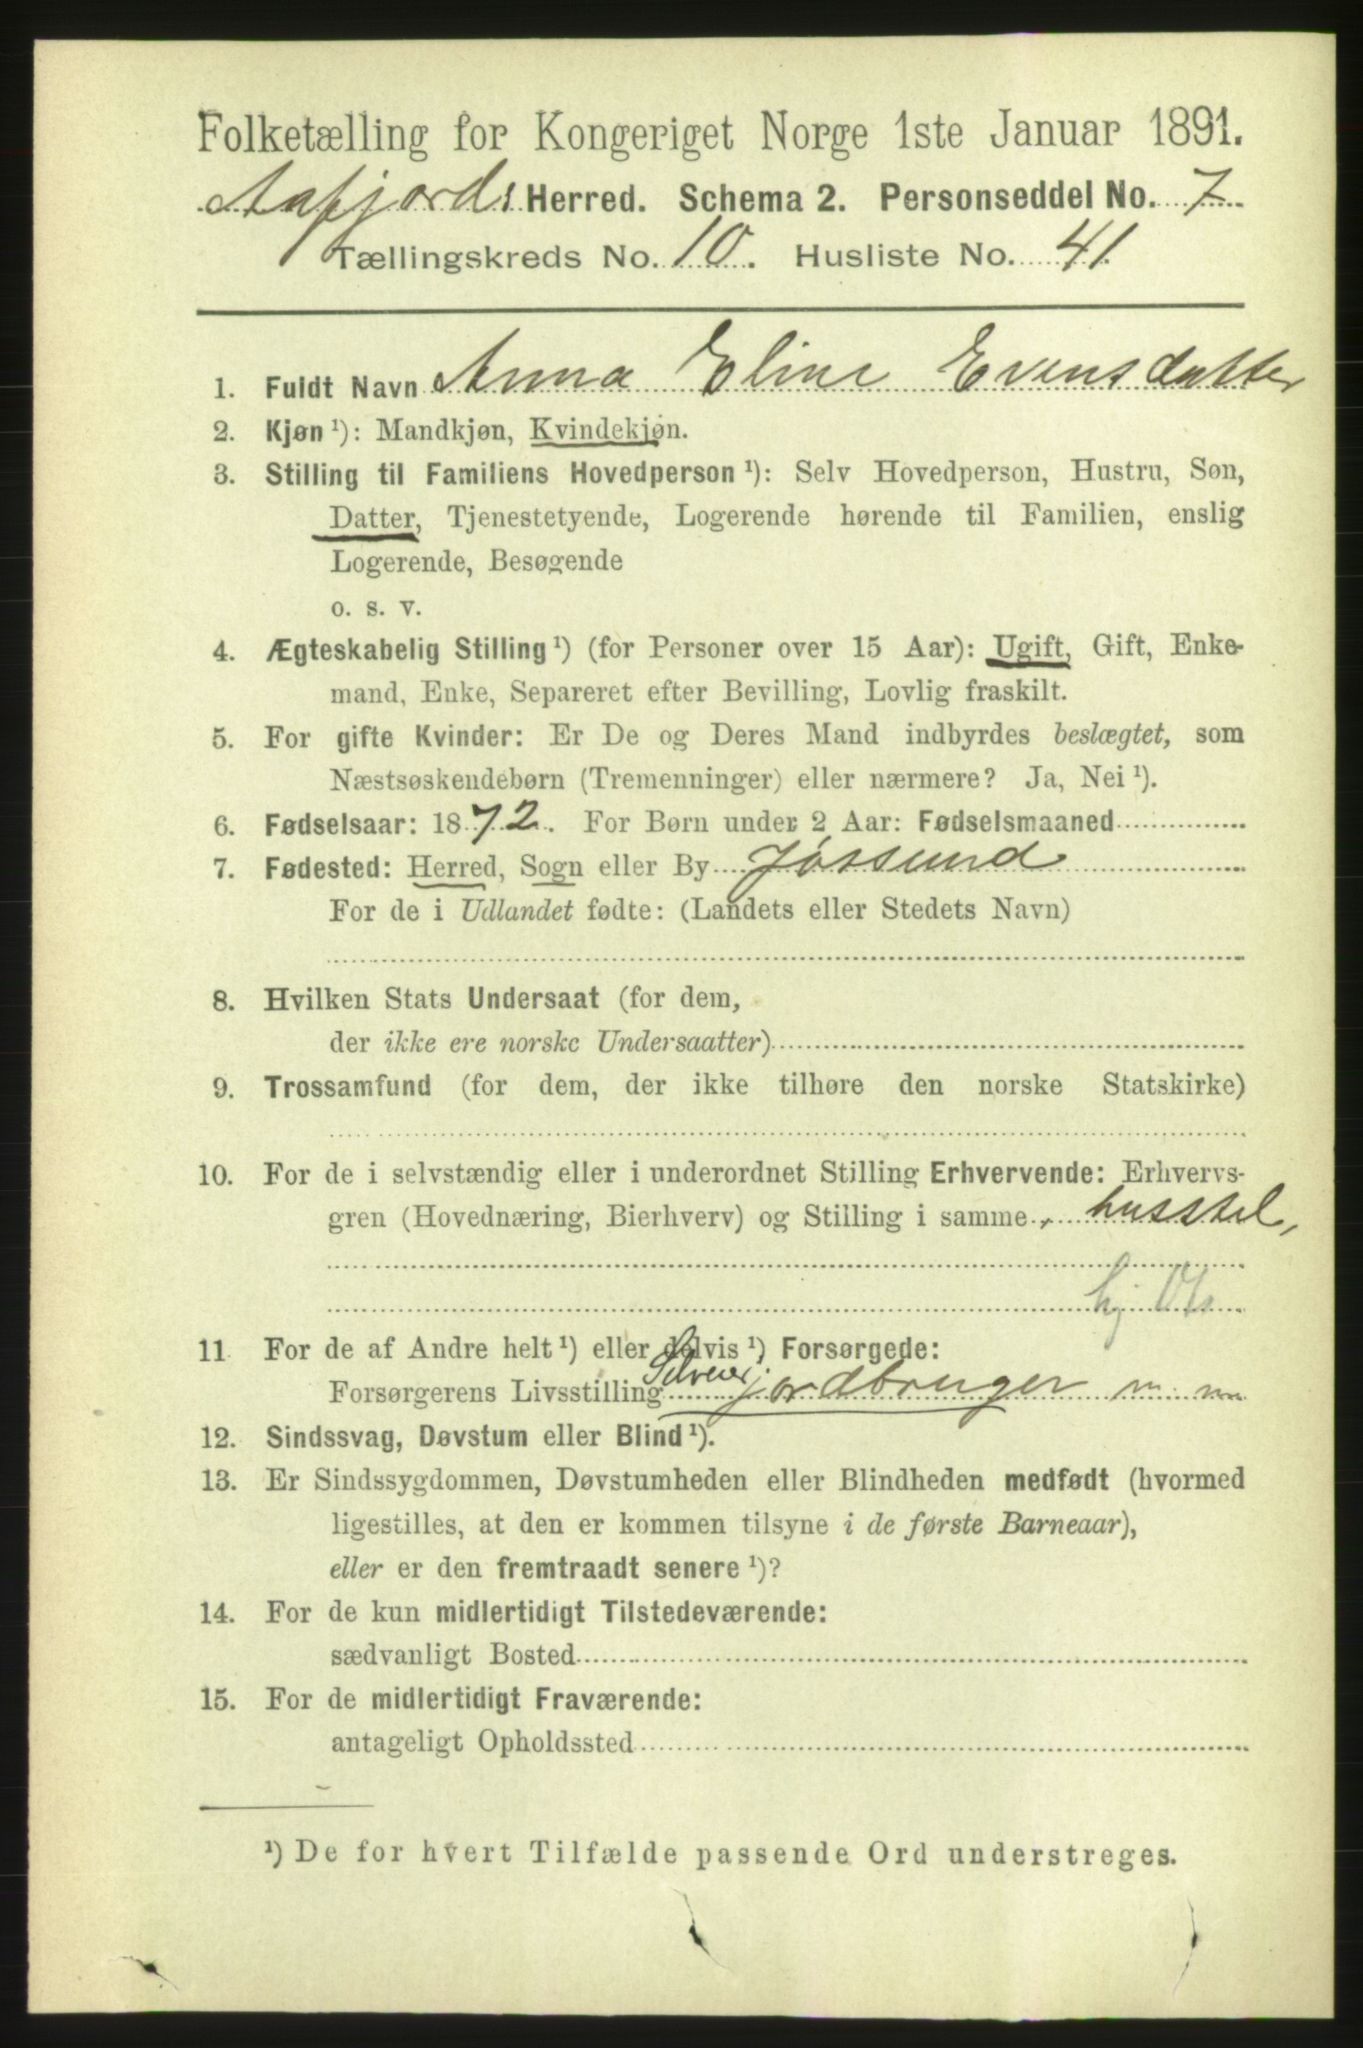 Folketælling for Kongeriget Norge 1ste Januar 1891.
Aafjords Herred. Schema 2. Personseddel No. 7
Tællingskreds No. 10. Husliste No. 41
1. Fuldt Navn Anna Eline Evensdatter
2. Kjøn ¹): Mandkjøn, Kvindekjøn.
3. Stilling til Familiens Hovedperson ¹): Selv Hovedperson, Hustru, Søn,
Datter, Tjenestetyende, Logerende hørende til Familien, enslig
Logerende, Besøgende
o. s. v.
4. Ægteskabelig Stilling ¹) (for Personer over 15 Aar): Ugift, Gift, Enke-
mand, Enke, Separeret efter Bevilling, Lovlig fraskilt.
5. For gifte Kvinder: Er De og Deres Mand indbyrdes beslægtet, som
Næstsøskendebørn (Tremenninger) eller nærmere? Ja, Nei ¹).
6. Fødselsaar: 1872. For Børn under 2 Aar: Fødselsmaaned
7. Fødested: Herred, Sogn eller By Jøssund
For de i Udlandet fødte: (Landets eller Stedets Navn)
8. Hvilken Stats Undersaat (for dem,
der ikke ere norske Undersaatter)
9. Trossamfund (for dem, der ikke tilhøre den norske Statskirke)
10. For de i selvstændig eller i underordnet Stilling Erhvervende: Erhvervs-
gren (Hovednæring, Bierhverv) og Stilling i samme, husstel,
hj.
11 For de af Andre helt ¹) eller delvis ¹) Forsørgede:
Forsørgerens Livsstilling Selveier jordbruger m. m
12. Sindssvag, Døvstum eller Blind ¹).
13. Er Sindssygdommen, Døvstumheden eller Blindheden medfødt (hvormed
ligestilles, at den er kommen tilsyne i de første Barneaar),
eller er den fremtraadt senere ¹)?
14. For de kun midlertidigt Tilstedeværende:
sædvanligt Bosted
15. For de midlertidigt Fraværende:
antageligt Opholdssted
¹) De for hvert Tilfælde passende Ord understreges.